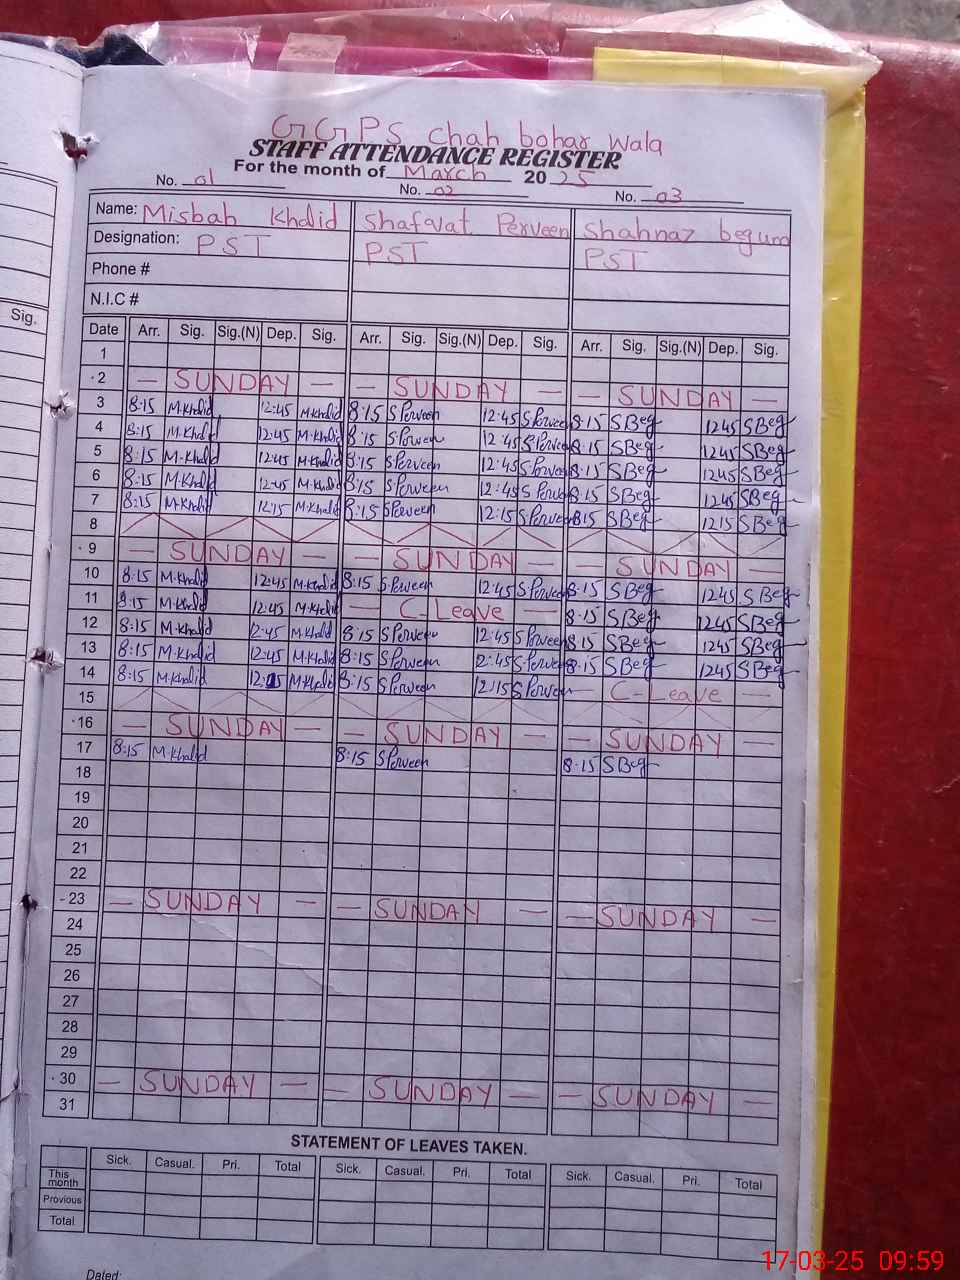 GGPS chah bohar wala
STAFF ATTENDANCE REGISTER
For the month of March 2025
No. 01 No. 02 No. 03
Name: Misbah Khalid Shafqat Perveen Shahnaz begum
Designation: PST PST PST
Phone #
N.I.C #
Sig.
Date Arr. Sig. Sig.(N) Dep. Sig. Arr. Sig. Sig.(N) Dep. Sig. Arr. Sig. Sig.(N) Dep. Sig.
1
2 — SUNDAY — — SUNDAY — — SUNDAY —
3 8:15 M.Khalid 12:45 M.Khalid 8:15 S Perveen 12:45 S Perveen 8:15 S Beg 1245 S Beg
4 8:15 M.Khalid 12:45 M.Khalid 8:15 S Perveen 12:45 S Perveen 8:15 S Beg 1245 S Beg
5 8:15 M.Khalid 12:45 M.Khalid 8:15 S Perveen 12:45 S Perveen 8:15 S Beg 1245 S Beg
6 8:15 M.Khalid 12:45 M.Khalid 8:15 S Perveen 12:45 S Perveen 8:15 S Beg 1245 S Beg
7 8:15 M.Khalid 12:15 M.Khalid 8:15 S Perveen 12:15 S Perveen 8:15 S Beg 1215 S Beg
8
9 — SUNDAY — — SUNDAY — — SUNDAY —
10 8:15 M.Khalid 12:45 M.Khalid 8:15 S Perveen 12:45 S Perveen 8:15 S Beg 1245 S Beg
11 8:15 M.Khalid 12:45 M.Khalid — C-Leave — 8:15 S Beg 1245 S Beg
12 8:15 M.Khalid 12:45 M.Khalid 8:15 S Perveen 12:45 S Perveen 8:15 S Beg 1245 S Beg
13 8:15 M.Khalid 12:45 M.Khalid 8:15 S Perveen 12:45 S Perveen 8:15 S Beg 1245 S Beg
14 8:15 M.Khalid 12:15 M.Khalid 8:15 S Perveen 12:15 S Perveen — C-Leave —
15
16 — SUNDAY — — SUNDAY — — SUNDAY —
17 8:15 M.Khalid 8:15 S Perveen 8:15 S Beg
18
19
20
21
22
23 — SUNDAY — — SUNDAY — — SUNDAY —
24
25
26
27
28
29
30 — SUNDAY — — SUNDAY — — SUNDAY —
31
STATEMENT OF LEAVES TAKEN.
Sick. Casual. Pri. Total Sick. Casual. Pri. Total Sick. Casual. Pri. Total
This month
Previous
Total
Dated:
17-03-25 09:59